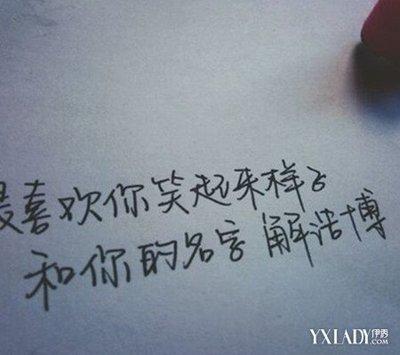 最喜欢你笑起来样子
和你的名字 解浩博
YXLADY.伊秀.COM